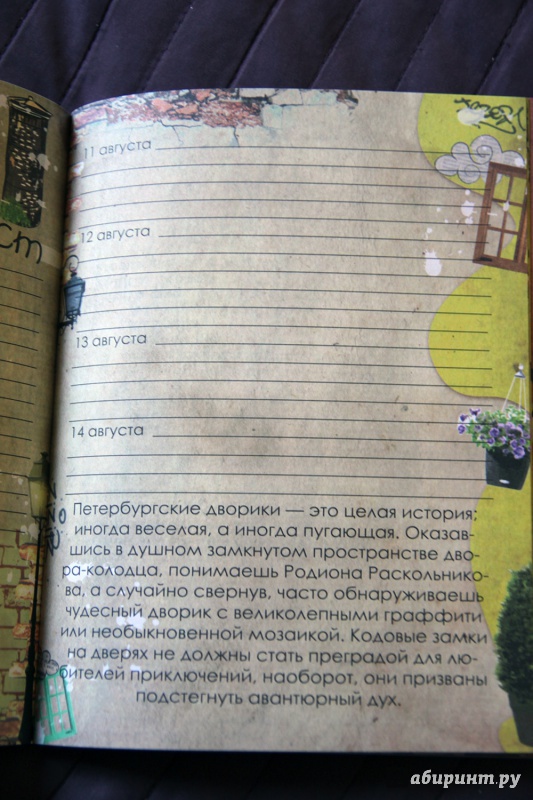 11 августа
12 августа
ст
13 августа
14 августа
Петербургские дворики — это целая история:
иногда веселая, а иногда пугающая. Оказав-
шись в душном замкнутом пространстве дво-
ра-колодца, понимаешь Родиона Раскольнико-
ва, а случайно свернув, часто обнаруживаешь
чудесный дворик с великолепными граффити
или необыкновенной мозаикой. Кодовые замки
на дверях не должны стать преградой для лю-
бителей приключений, наоборот, они призваны
подстегнуть авантюрный дух.
абиринт.ру